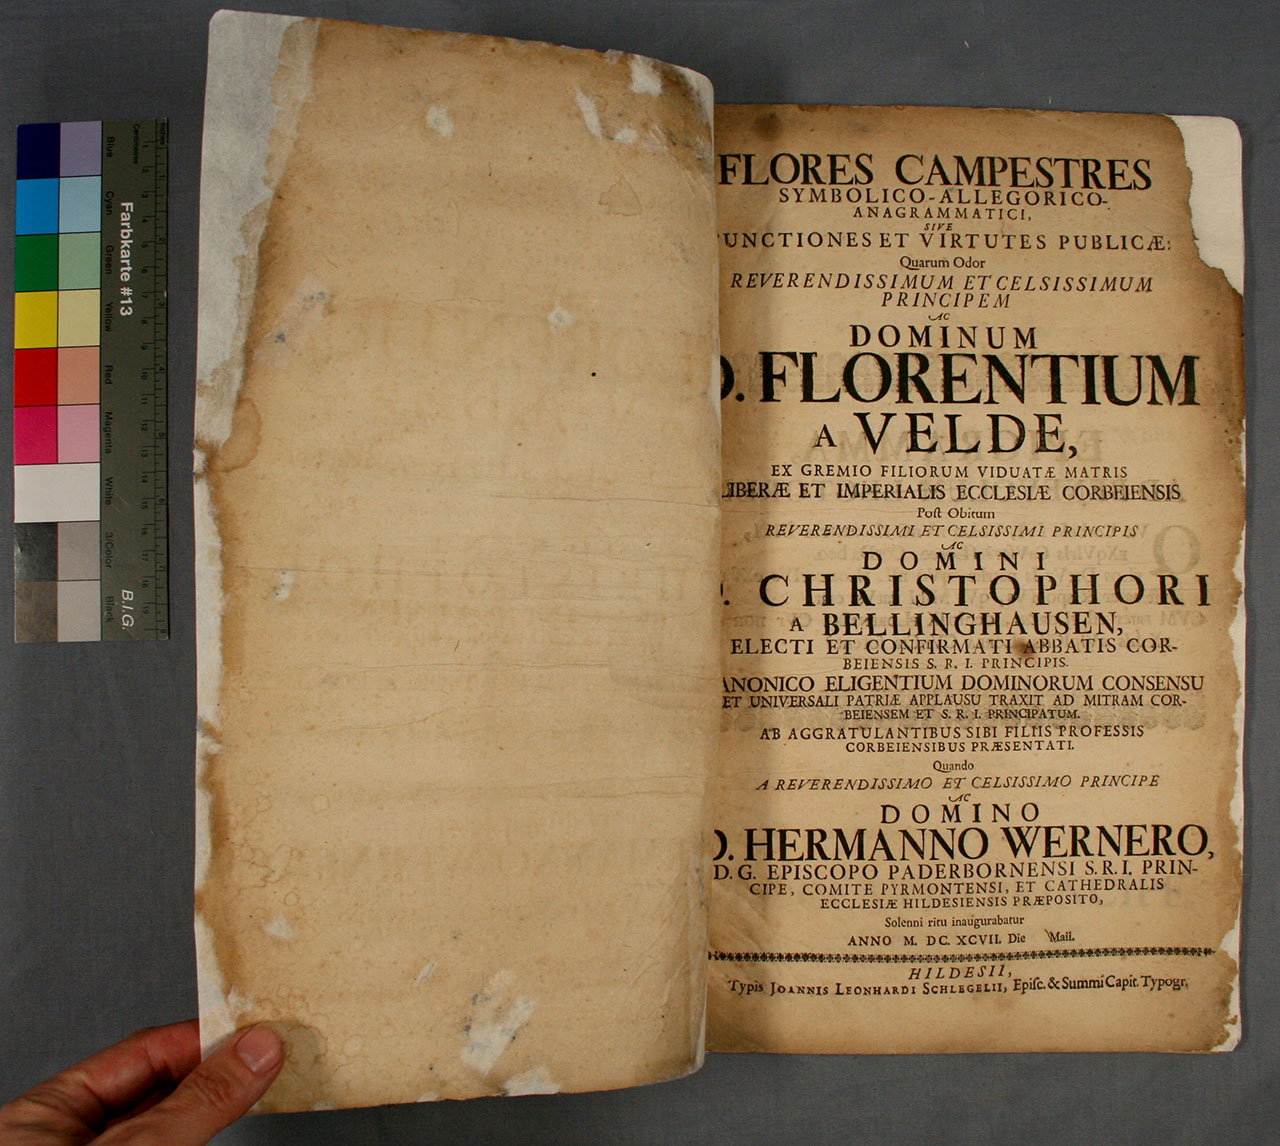 Farbkarte #13
B.I.G.
Centimetres
Blue
Cyan
Green
Yellow
Red
Magenta
White
3/Color
Black
FLORES CAMPESTRES
SYMBOLICO-ALLEGORICO-
ANAGRAMMATICI,
SIVE
UNCTIONES ET VIRTUTES PUBLICÆ:
Quarum Odor
REVERENDISSIMUM ET CELSISSIMUM
PRINCIPEM
AC
DOMINUM
D. FLORENTIUM
A VELDE,
EX GREMIO FILIORUM VIDUATÆ MATRIS
LIBERÆ ET IMPERIALIS ECCLESIÆ CORBEIENSIS
Post Obitum
REVERENDISSIMI ET CELSISSIMI PRINCIPIS
AC
DOMINI
D. CHRISTOPHORI
A BELLINGHAUSEN,
ELECTI ET CONFIRMATI ABBATIS COR-
BEIENSIS S. R. I. PRINCIPIS.
ANONICO ELIGENTIUM DOMINORUM CONSENSU
ET UNIVERSALI PATRIÆ APPLAUSU TRAXIT AD MITRAM COR-
BEIENSEM ET S. R. I. PRINCIPATUM.
AB AGGRATULANTIBUS SIBI FILIIS PROFESSIS
CORBEIENSIBUS PRÆSENTATI.
Quando
A REVERENDISSIMO ET CELSISSIMO PRINCIPE
AC
DOMINO
D. HERMANNO WERNERO,
D. G. EPISCOPO PADERBORNENSI S. R. I. PRIN-
CIPE, COMITE PYRMONTENSI, ET CATHEDRALIS
ECCLESIÆ HILDESIENSIS PRÆPOSITO,
Solenni ritu inaugurabatur
ANNO M. DC. XCVII. Die Maii.
HILDESII,
Typis JOANNIS LEONHARDI SCHLEGELII, Episc. & Summi Capit. Typogr.